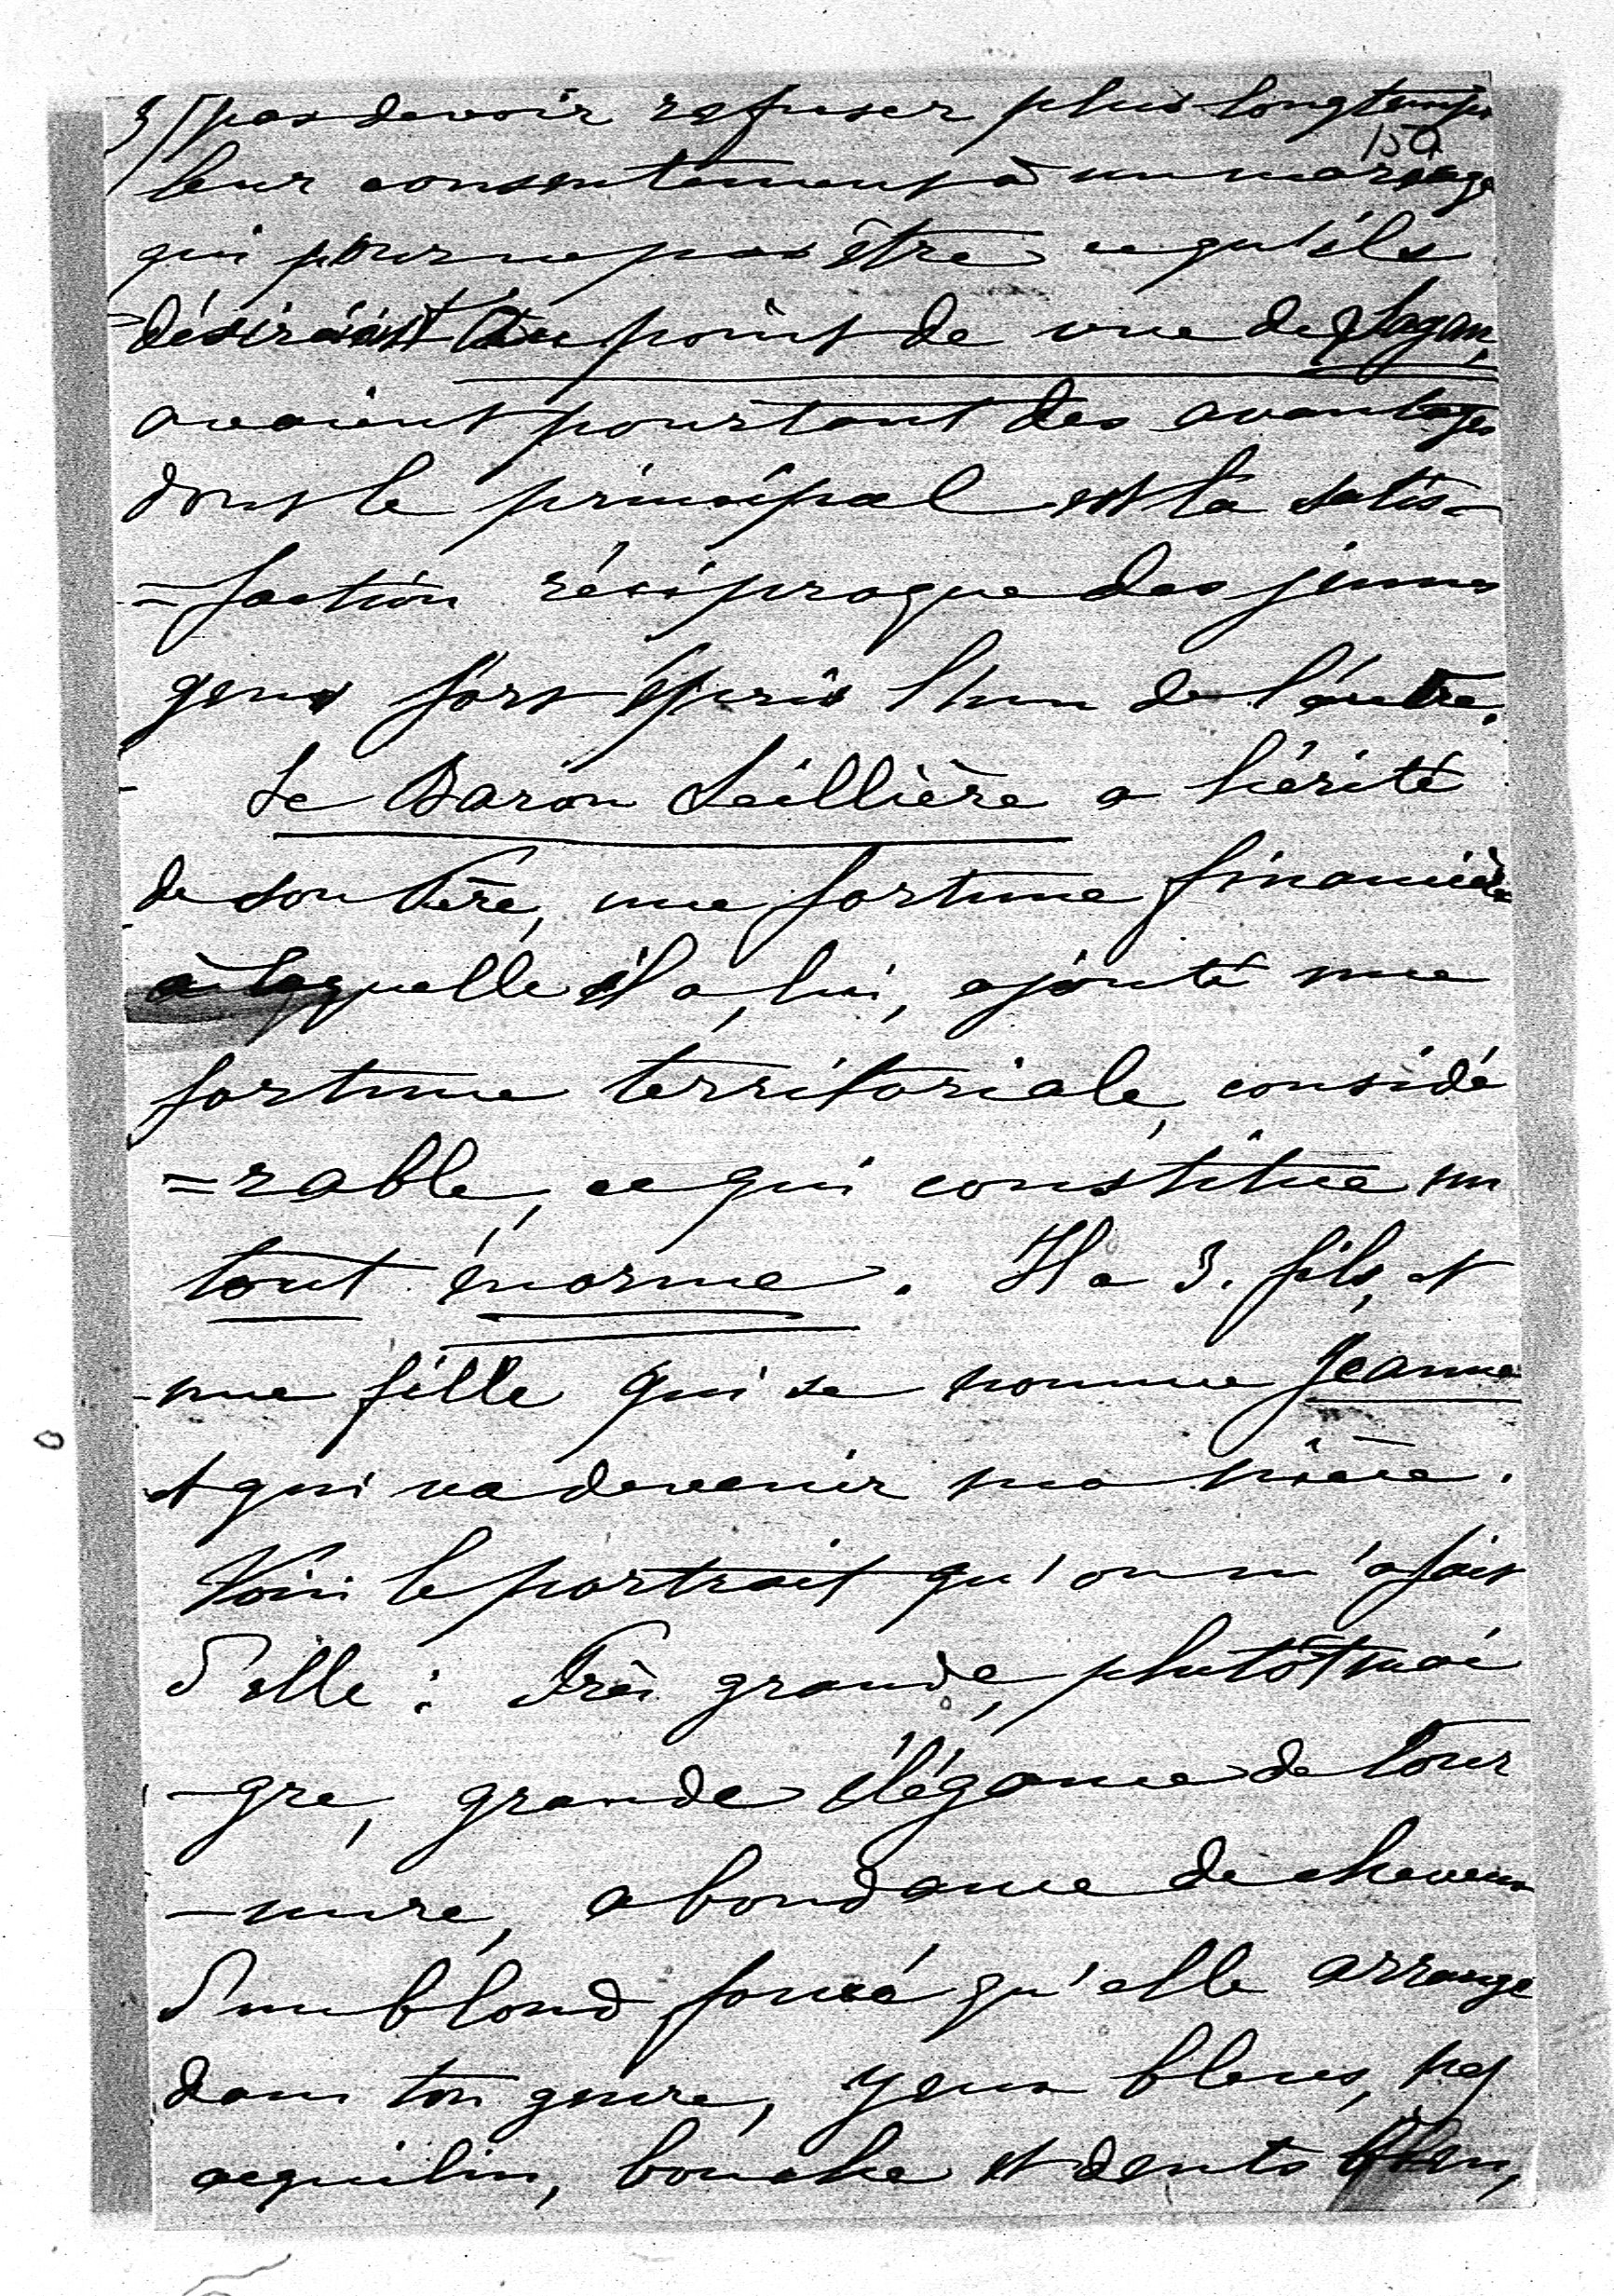 3/ pas devoir refuser plus longtemps
150
leur consentement à un mariage
qui pour ne pas être ce qu'ils
désiraient au point de vue de Sagan,
avaient pourtant des avantages
dont le principal est la satis-
=faction réciproque des jeunes
gens fort épris l'un de l'autre.
Le Baron Seillière a hérité
de son Père, une fortune financière
à laquelle il a, lui, ajouté une
fortune territoriale, considé
=rable, ce qui constitue un
tout énorme. Il a 3. fils, et
une fille qui se nomme Jeanne
et qui va devenir ma nièce.
Voici le portrait qu'on m'a fait
d'elle : Très grande, plutôt mai
-gre, grande élégance de tour
-nure, abondance de cheveux
d'un blond foncé qu'elle arrange
dans ton genre, yeux bleus, nez
aquilin, bouche et dents bien,